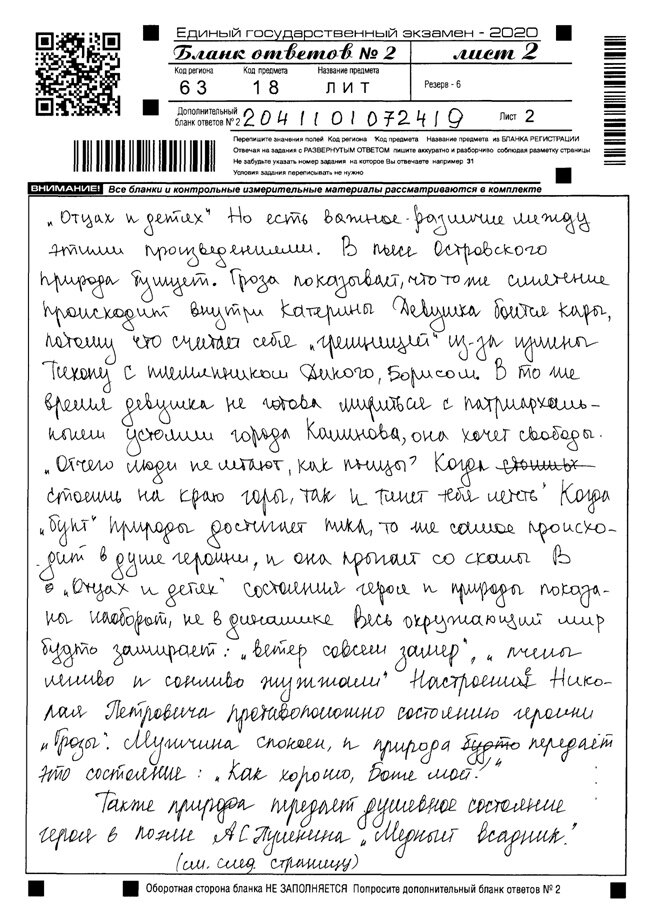 Единый государственный экзамен - 2020
Бланк ответов № 2 лист 2
Код региона Код предмета Название предмета
63 18 ЛИТ Резерв - 6
Дополнительный
бланк ответов № 2 2041101072419 Лист 2
Перепишите значения полей Код региона Код предмета Название предмета из БЛАНКА РЕГИСТРАЦИИ
Отвечая на задания с РАЗВЕРНУТЫМ ОТВЕТОМ пишите аккуратно и разборчиво соблюдая разметку страницы
Не забудьте указать номер задания на которое Вы отвечаете например 31
Условия задания переписывать не нужно
ВНИМАНИЕ! Все бланки и контрольные измерительные материалы рассматриваются в комплекте
„Отцах и детях" Но есть важное различие между
этими произведениями. В пьесе Островского
природа бушует. Гроза показывает, что то же смятение
происходит внутри Катерины Девушка боится кары,
потому что считает себя „грешницей" из-за измены
Тихону с племянником Дикого, Борисом. В то же
время девушка не готова мириться с патриархаль-
ными устоями города Калинова, она хочет свободы.
„Отчего люди не летают, как птицы? Когда
стоишь на краю горы, так и тянет тебя лететь" Когда
„бунт" природы достигает пика, то же самое происхо-
дит в душе героини, и она прыгает со скалы В
„Отцах и детях" состояния героя и природы показа-
ны наоборот, не в динамике Весь окружающий мир
будто замирает: „ветер совсем замер", „пчелы
лениво и сонливо жужжали" Настроение Нико-
лая Петровича противоположно состоянию героини
„Грозы". Мужчина спокоен, и природа будто передает
это состояние: „Как хорошо, Боже мой!"
Также природа передает душевное состояние
героя в поэме А С Пушкина „Медный всадник".
(см. след. страницу)
Оборотная сторона бланка НЕ ЗАПОЛНЯЕТСЯ Попросите дополнительный бланк ответов № 2